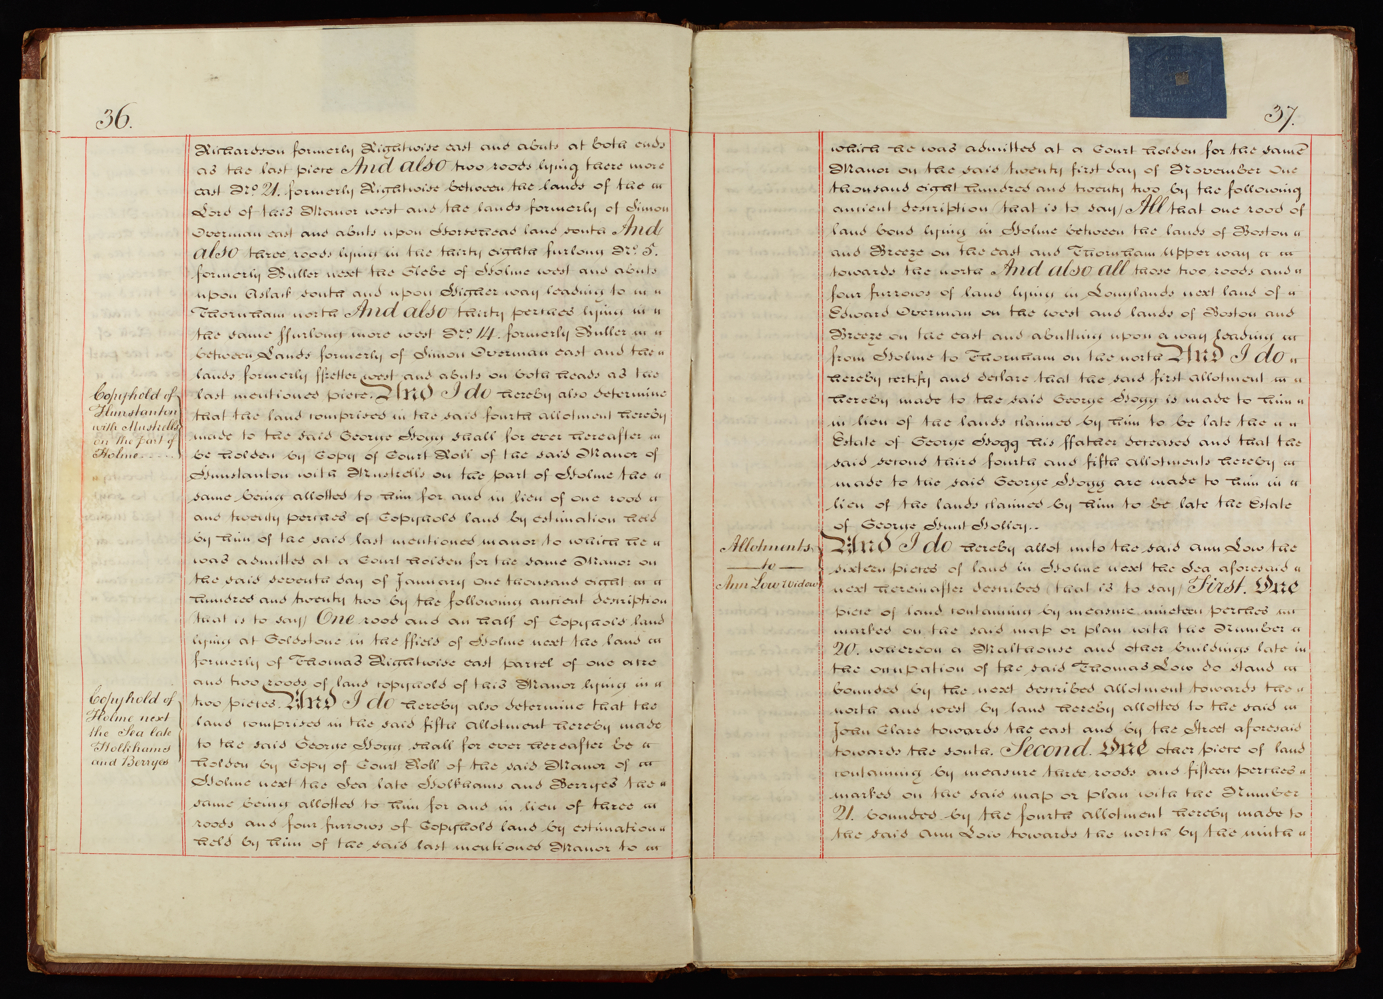 36.
Richardson formerly Rightwise east and abuts at both ends
as the last piece And also two roods lying there more
east No. 21. formerly Rightwise between the lands of the
Lord of this Manor west and the lands formerly of Simon
Overman east and abuts upon Horsehead land south And
also three roods lying in the thirty eighth furlong No. 5.
formerly Buller next the Glebe of Holme west and abuts
upon Aslack south and upon Higher way leading to
Thornham north And also thirty perches lying in
the same ffurlong more west No. 14. formerly Buller
between Lands formerly of Simon Overman east and the
lands formerly ffretter west and abuts on both heads as the
last mentioned piece. And I do hereby also determine
that the land comprised in the said fourth allotment hereby
made to the said George Hogg shall for ever hereafter
be holden by Copy of Court Roll of the said Manor of
Hunstanton with Mustrells on the part of Holme the
same being allotted to him for and in lieu of one rood
and twenty perches of Copyhold land by estimation held
by him of the said last mentioned manor to which he
was admitted at a Court holden for the same Manor on
the said seventh day of January One thousand eight
hundred and twenty two by the following ancient description
that is to say) One rood and an half of Copyhold land
lying at Goldstone in the ffield of Holme next the land
formerly of Thomas Rightwise east parcel of one acre
and two roods of land copyhold of this Manor lying in
two pieces. And I do hereby also determine that the
land comprised in the said fifth allotment hereby made
to the said George Hogg shall for ever hereafter be
holden by Copy of Court Roll of the said Manor of
Holme next the Sea late Holkhams and Berryes the
same being allotted to him for and in lieu of three
roods and four furrows of Copyhold land by estimation
held by him of the said last mentioned Manor to
Copyhold of
Hunstanton
with Mustrells
on the part of
Holme
Copyhold of
Holme next
the Sea late
Holkhams
and Berryes
37.
which he was admitted at a Court holden for the same
Manor on the said twenty first day of November One
thousand eight hundred and twenty two by the following
ancient description (that is to say) All that one rood of
land bond lying in Holme between the lands of Boston
and Breeze on the east and Thornham upper way
towards the north And also all those two roods and
four furrows of land lying in Longlands next land of
Edward Overman on the west and lands of Boston and
Breeze on the east and abutting upon a way leading
from Holme to Thornham on the north And I do
hereby certify and declare that the said first allotment
hereby made to the said George Hogg is made to him
in lieu of the lands claimed by him to be late the
Estate of George Hogg his ffather deceased and that the
said second third fourth and fifth allotments hereby
made to the said George Hogg are made to him in
lieu of the lands claimed by him to be late the Estate
of George Hunt Holley.
And I do hereby allot unto the said Ann Low the
sixteen pieces of land in Holme next the Sea aforesaid
next hereinafter described (that is to say) First. One
piece of land containing by measure nineteen perches
marked on the said map or plan with the Number
20. whereon a Malthouse and other buildings late in
the occupation of the said Thomas Low do stand
bounded by the next described allotment towards the
north and west by land hereby allotted to the said
John Clare towards the east and by the Street aforesaid
towards the south. Second. One other piece of land
containing by measure three roods and fifteen perches
marked on the said map or plan with the Number
21. bounded by the fourth allotment hereby made to
the said Ann Low towards the north by the ninth
Allotments
to
Ann Low Widow